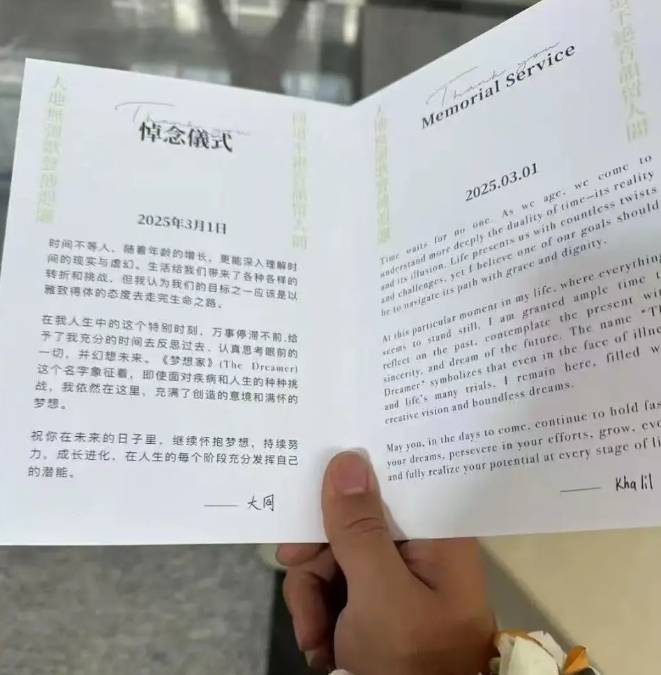 Thank you
悼念儀式
2025年3月1日
时间不等人，随着年龄的增长，更能深入理解时
间的现实与虚幻。生活给我们带来了各种各样的
转折和挑战，但我认为我们的目标之一应该是以
雅致得体的态度去走完生命之路。
在我人生中的这个特别时刻，万事停滞不前,给
予了我充分的时间去反思过去、认真思考眼前的
一切，并幻想未来。《梦想家》(The Dreamer)
这个名字象征着，即使面对疾病和人生的种种挑
战，我依然在这里，充满了创造的意境和满怀的
梦想。
祝你在未来的日子里，继续怀抱梦想，持续努
力，成长进化，在人生的每个阶段充分发挥自己
的潜能。
—— 大同
Thank you
Memorial Service
2025.03.01
Time waits for no one. As we age, we come to
understand more deeply the duality of time—its reality
and its illusion. Life presents us with countless twists
and challenges, yet I believe one of our goals should
be to navigate its path with grace and dignity.
At this particular moment in my life, where everything
seems to stand still, I am granted ample time t
reflect on the past, contemplate the present wi
sincerity, and dream of the future. The name "Th
Dreamer" symbolizes that even in the face of illne
and life's many trials, I remain here, filled w
creative vision and boundless dreams.
May you, in the days to come, continue to hold fas
your dreams, persevere in your efforts, grow, evo
and fully realize your potential at every stage of li
—— Khalil